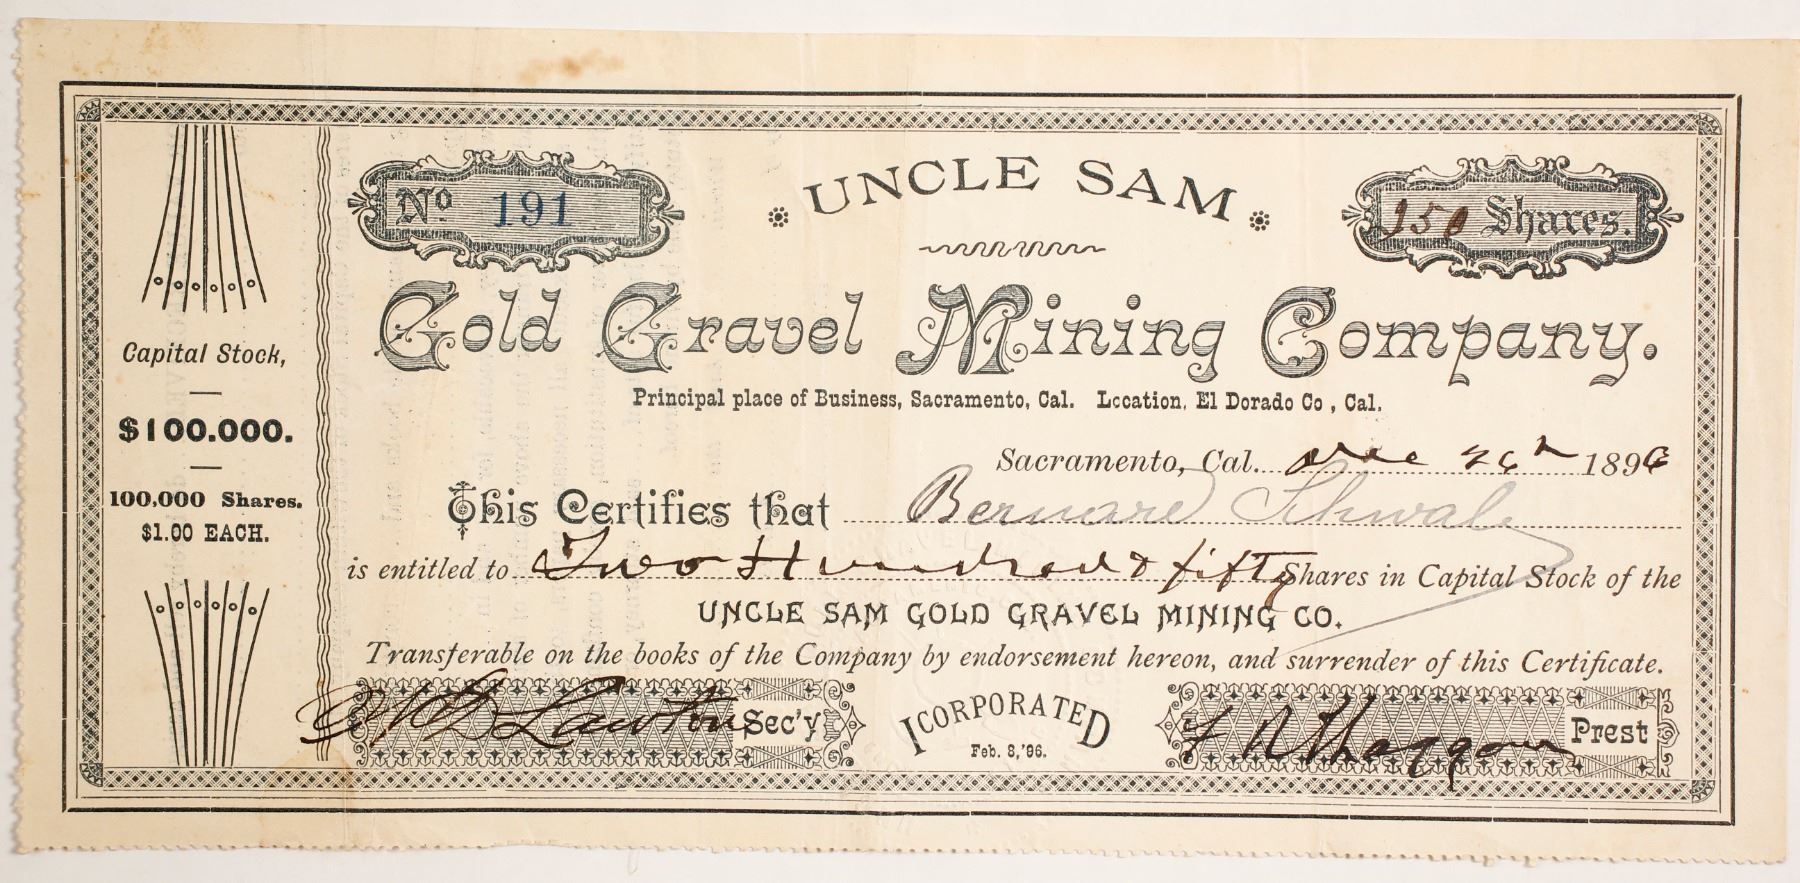 UNCLE SAM
No 191
250 Shares.
Gold Gravel Mining Company.
Principal place of Business, Sacramento, Cal. Location, El Dorado Co, Cal.
Capital Stock,
$100.000.
100,000 Shares.
$1.00 EACH.
Sacramento, Cal. Dec 26th 1896
This Certifies that Bernard Schwab
is entitled to Two Hundred & fifty Shares in Capital Stock of the
UNCLE SAM GOLD GRAVEL MINING CO.
Transferable on the books of the Company by endorsement hereon, and surrender of this Certificate.
Lawton Sec'y
ICORPORATED
Feb. 8, '96.
Prest